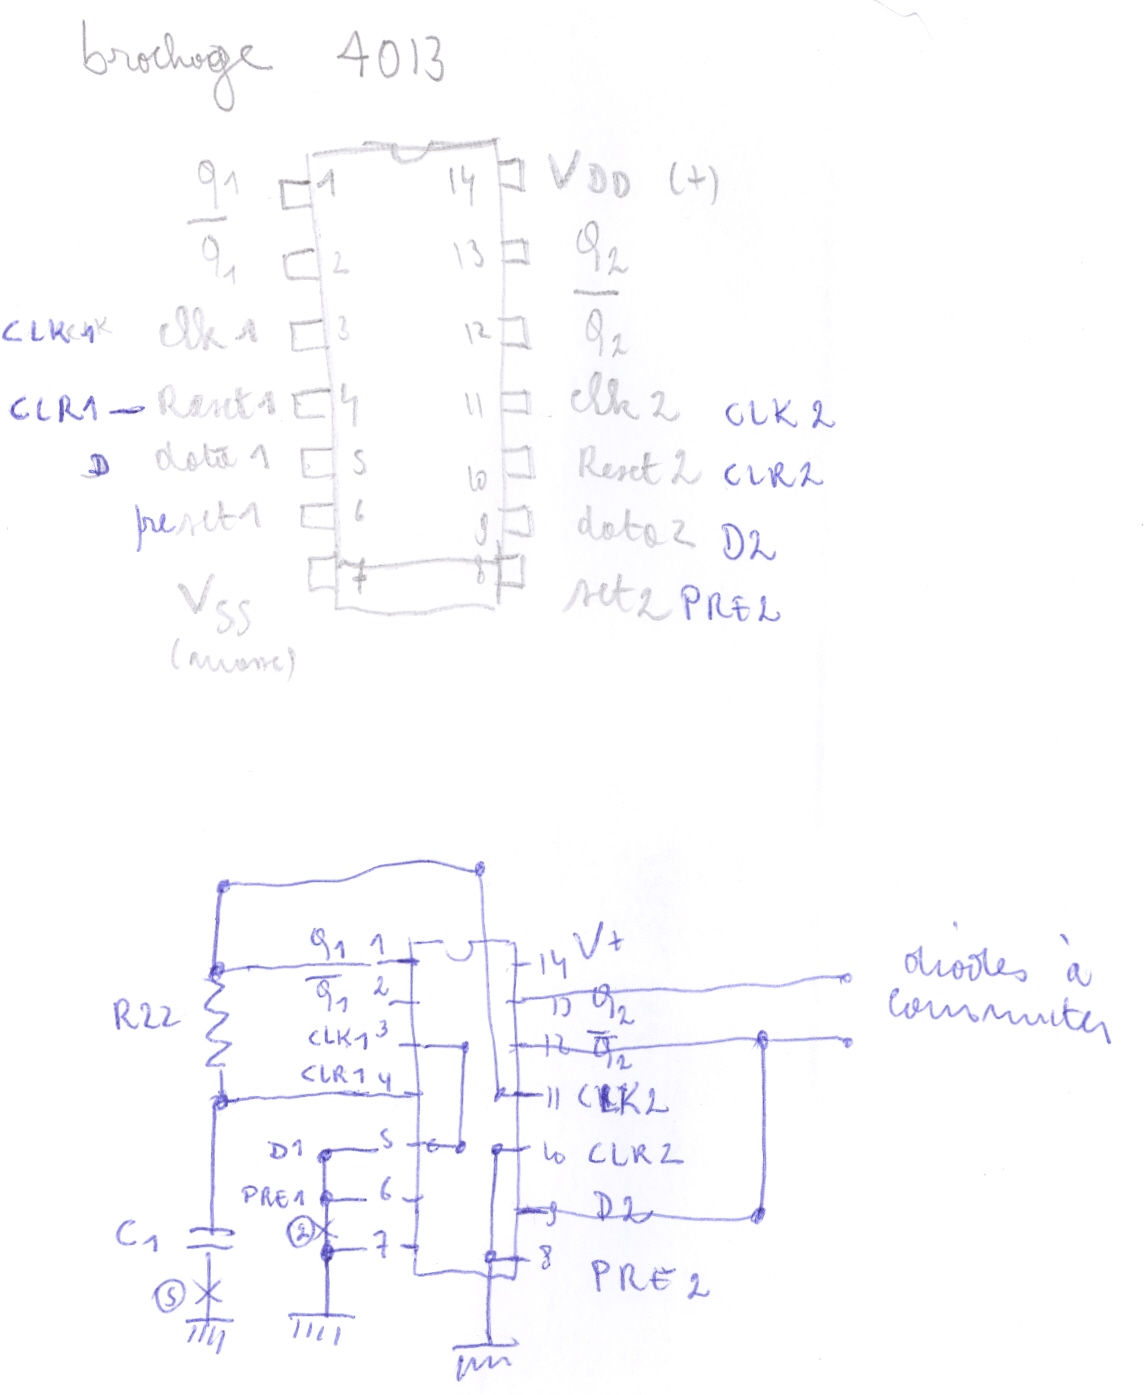 brochage 4013
Q1 1 14 VDD (+)
Q̅1 2 13 Q2
CLK1 clk 1 3 12 Q̅2
CLR1 – Reset 1 4 11 clk 2 CLK 2
D data 1 5 10 Reset 2 CLR2
preset 1 6 9 data 2 D2
VSS 7 8 set 2 PRE2
(masse)
Q1 1 14 V+
Q̅1 2 13 Q2
R22 CLK1 3 12 Q̅2
diodes à
commuter
CLR1 4 11 CLK2
D1 5 10 CLR2
PRE1 6 9 D2
② 7 8 PRE2
C1
⑤